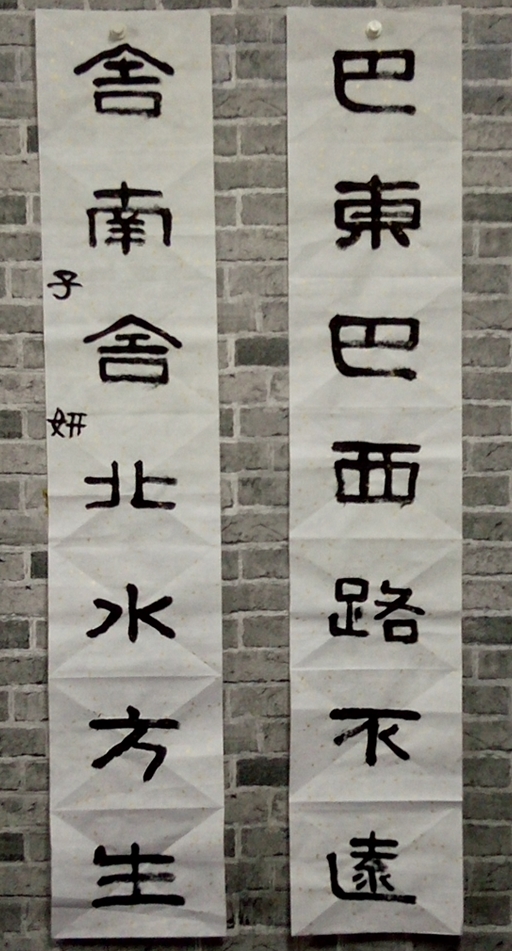 巴東巴西路不遠
舍南舍北水方生
子妍